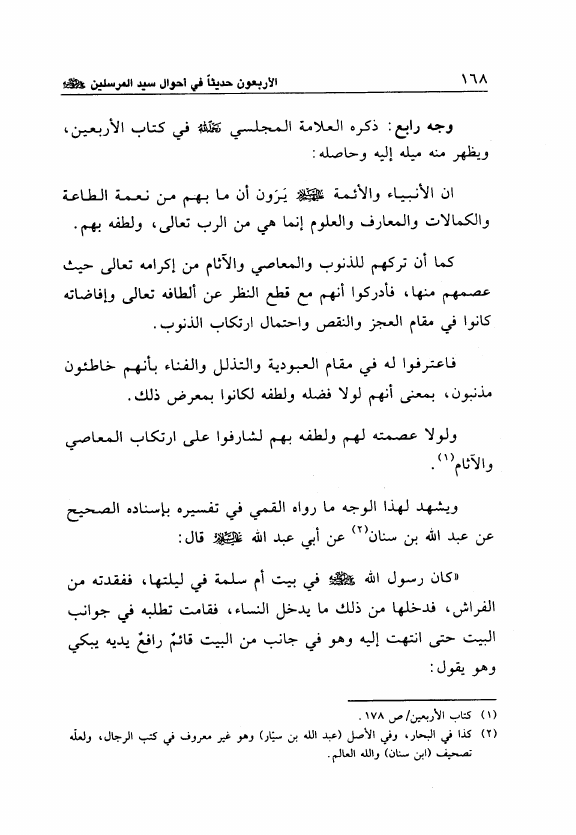 ١٦٨ الأربعون حديثاً في أحوال سيد المرسلين ﷺ
وجه رابع: ذكره العلامة المجلسي في كتاب الأربعين،
ويظهر منه ميله إليه وحاصله:
ان الأنبياء والأئمة يَرَون أن ما بهم من نعمة الطاعة
والكمالات والمعارف والعلوم إنما هي من الرب تعالى، ولطفه بهم.
كما أن تركهم للذنوب والمعاصي والآثام من إكرامه تعالى حيث
عصمهم منها، فأدركوا أنهم مع قطع النظر عن ألطافه تعالى وإفاضاته
كانوا في مقام العجز والنقص واحتمال ارتكاب الذنوب.
فاعترفوا له في مقام العبودية والتذلل والفناء بأنهم خاطئون
مذنبون، بمعنى أنهم لولا فضله ولطفه لكانوا بمعرض ذلك.
ولولا عصمته لهم ولطفه بهم لشارفوا على ارتكاب المعاصي
والآثام(١).
ويشهد لهذا الوجه ما رواه القمي في تفسيره بإسناده الصحيح
عن عبد الله بن سنان(٢) عن أبي عبد الله قال:
«كان رسول الله ﷺ في بيت أم سلمة في ليلتها، ففقدته من
الفراش، فدخلها من ذلك ما يدخل النساء، فقامت تطلبه في جوانب
البيت حتى انتهت إليه وهو في جانب من البيت قائمٌ رافعٌ يديه يبكي
وهو يقول:
(١) كتاب الأربعين/ ص ١٧٨.
(٢) كذا في البحار، وفي الأصل (عبد الله بن سيّار) وهو غير معروف في كتب الرجال، ولعلّه
تصحيف (ابن سنان) والله العالم.